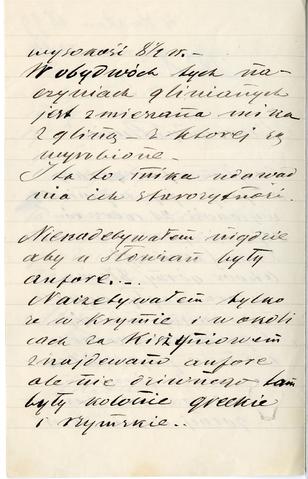 wysokość 8½ v. –
W obydwóch tych na-
czyniach glinianych
jest zmieszana mika
z gliną – z której są
wyrobione –
I ta to mika udowad
nia ich starożytność.
Nienadebywałem nigdzie
aby u Słowian były
anfore. –
tylko
że w Krymie i w okoli
cach za Kiszyniowem
znajdowano anfore
ale nic dziwnego tam
były kolonie greckie
i rzymskie..